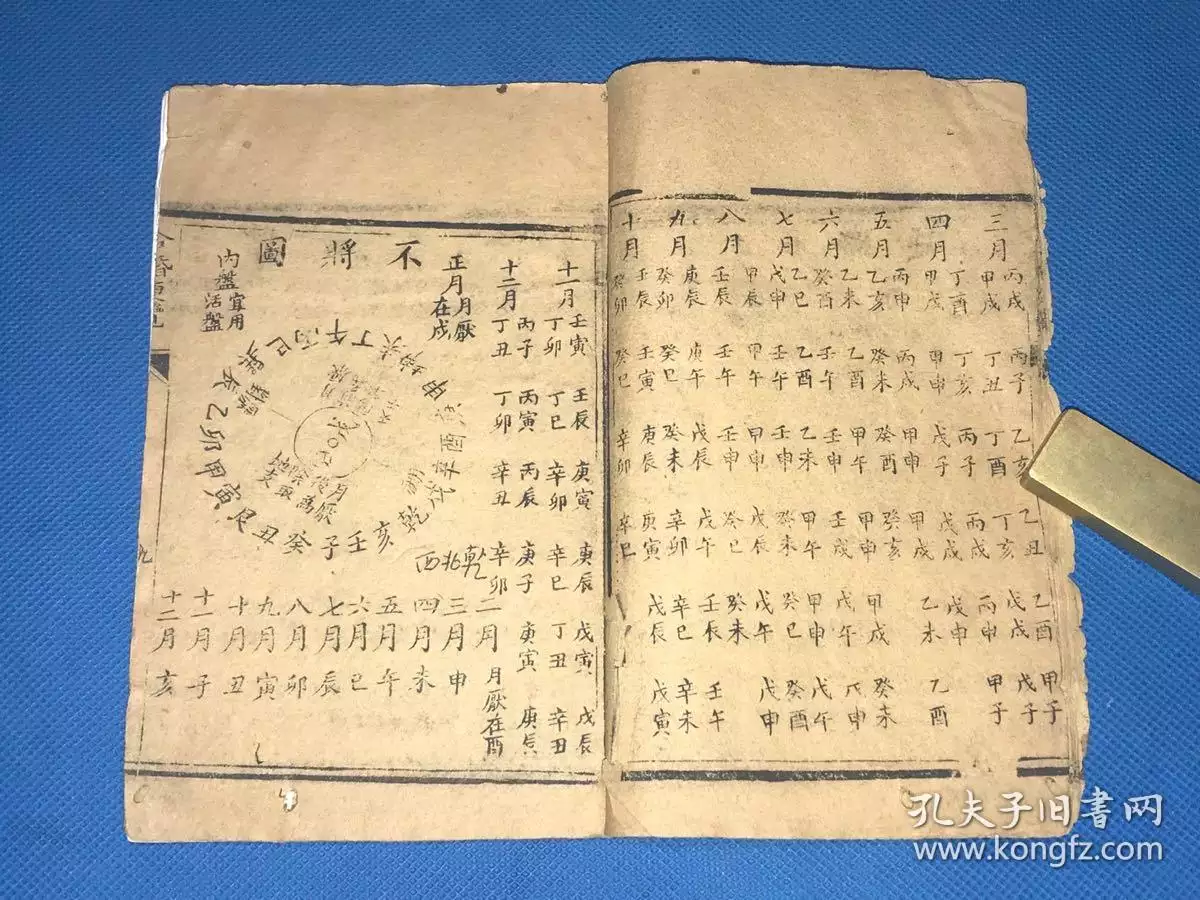 三月 丙戌 丙子 乙亥 乙丑 乙酉 甲子
甲戌 丁丑 丁酉 丁亥 戊戌 戊子
四月 丁酉 丁亥 丙子 丙戌 丙申 甲子
甲戌 甲申 戊子 戊戌 戊申
五月 丙申 丙戌 甲申 甲戌 乙未 乙酉
乙亥 癸未 癸酉 癸亥 甲戌 癸未
六月 乙未 乙酉 甲午 甲申 戊午
癸酉 壬午 壬申 壬戌 甲申 戊午
七月 乙巳 乙酉 乙未 甲午 癸巳 癸酉
戊申 壬午 壬申 癸未 戊午 戊申
八月 甲辰 甲午 甲申 戊辰 癸未
壬辰 壬午 壬申 癸巳 壬辰 壬午
九月 庚辰 庚午 戊辰 戊午 辛巳 辛未
癸卯 癸巳 癸未 辛卯 戊辰 戊寅
十月 壬辰 壬寅 庚辰 庚寅
癸卯 癸巳 辛卯 辛巳
十一月 壬寅 壬辰 庚寅 庚辰 戊寅 戊辰
丁卯 丁巳 辛卯 辛巳 丁丑 辛丑
十二月 丙子 丙寅 丙辰 庚子 庚寅 庚辰
丁丑 丁卯 辛丑 辛卯
不將圖
正月 月厭在戌
內盤宜用活盤
丁午丙巳
辰乙卯甲寅艮丑癸子壬亥乾戌辛酉
月厭
乾
西北
二月 月厭在酉
三月申
四月未
五月午
六月巳
七月辰
八月卯
九月寅
十月丑
十一月子
十二月亥
九
孔夫子旧书网
www.kongfz.com